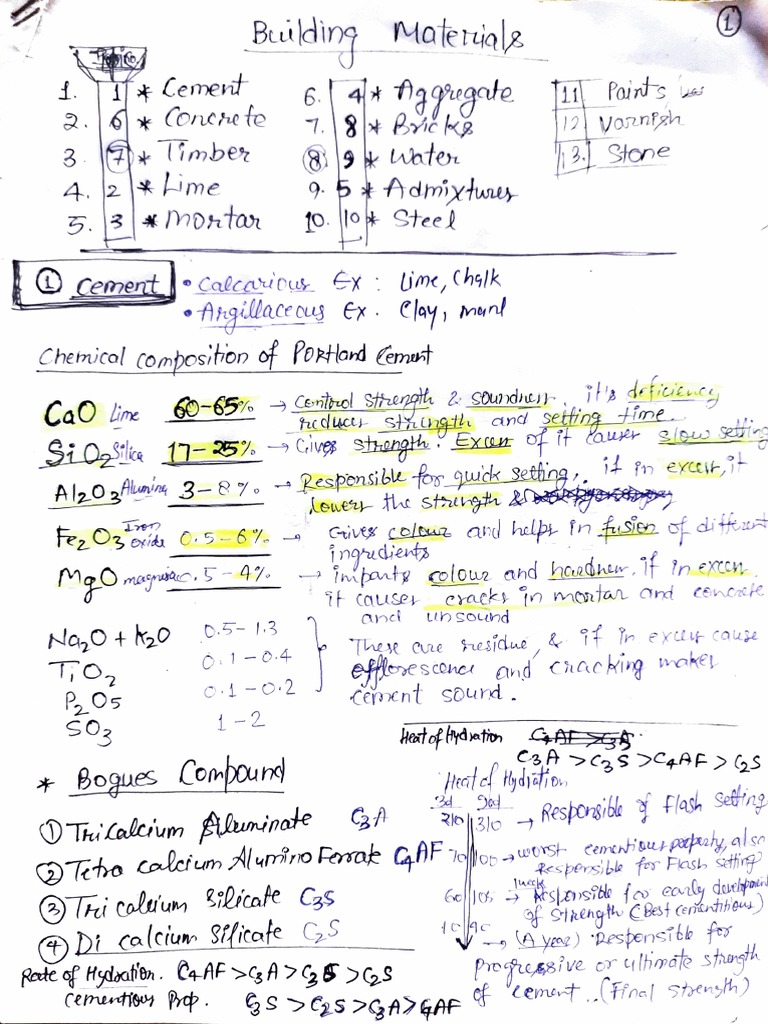 1
Building Materials
Topic
1. 1 * Cement
2. 6 * Concrete
3. 7 * Timber
4. 2 * Lime
5. 3 * Mortar
6. 4 * Aggregate
7. 8 * Bricks
8 9 * Water
9. 5 * Admixtures
10. 10 * Steel
11 Paints
12 Varnish
13. Stone
① Cement • Calcarious Ex: Lime, Chalk
• Argillaceous Ex. Clay, marl
Chemical composition of Portland Cement
CaO Lime 60-65% → Control strength & soundness. it's deficiency
reduces strength and setting time.
SiO2 Silica 17-25% → Gives strength. Excess of it causes slow setting
Al2O3 Alumina 3-8% → Responsible for quick setting, if in excess, it
lowers the strength &
Fe2O3 Iron oxide 0.5-6% → Gives colour and helps in fusion of different
ingredients
MgO magnesia 0.5-4% → imparts colour and hardness. if in excess
it causes cracks in mortar and concrete
and unsound
Na2O + K2O 0.5-1.3
TiO2 0.1-0.4
P2O5 0.1-0.2
SO3 1-2
These are residue, & if in excess cause
efflorescence and cracking makes
cement sound.
Heat of Hydration C4AF > C3S
C3A > C3S > C4AF > C2S
* Bogues Compound
① Tricalcium Aluminate C3A
② Tetra calcium Alumino Ferrate C4AF
③ Tri calcium Silicate C3S
④ Di calcium Silicate C2S
Rate of Hydration. C4AF > C3A > C3S > C2S
Cementious Prop. C3S > C2S > C3A > C4AF
Heat of Hydration
3d 90d
210 310 → Responsible of Flash Setting
70 100 → worst cementious property, also
Responsible for Flash setting
60 105 → 1 week Responsible for early development
of strength (Best cementitious)
10 90
→ (A year) Responsible for
progressive or ultimate strength
of cement.. (Final strength)